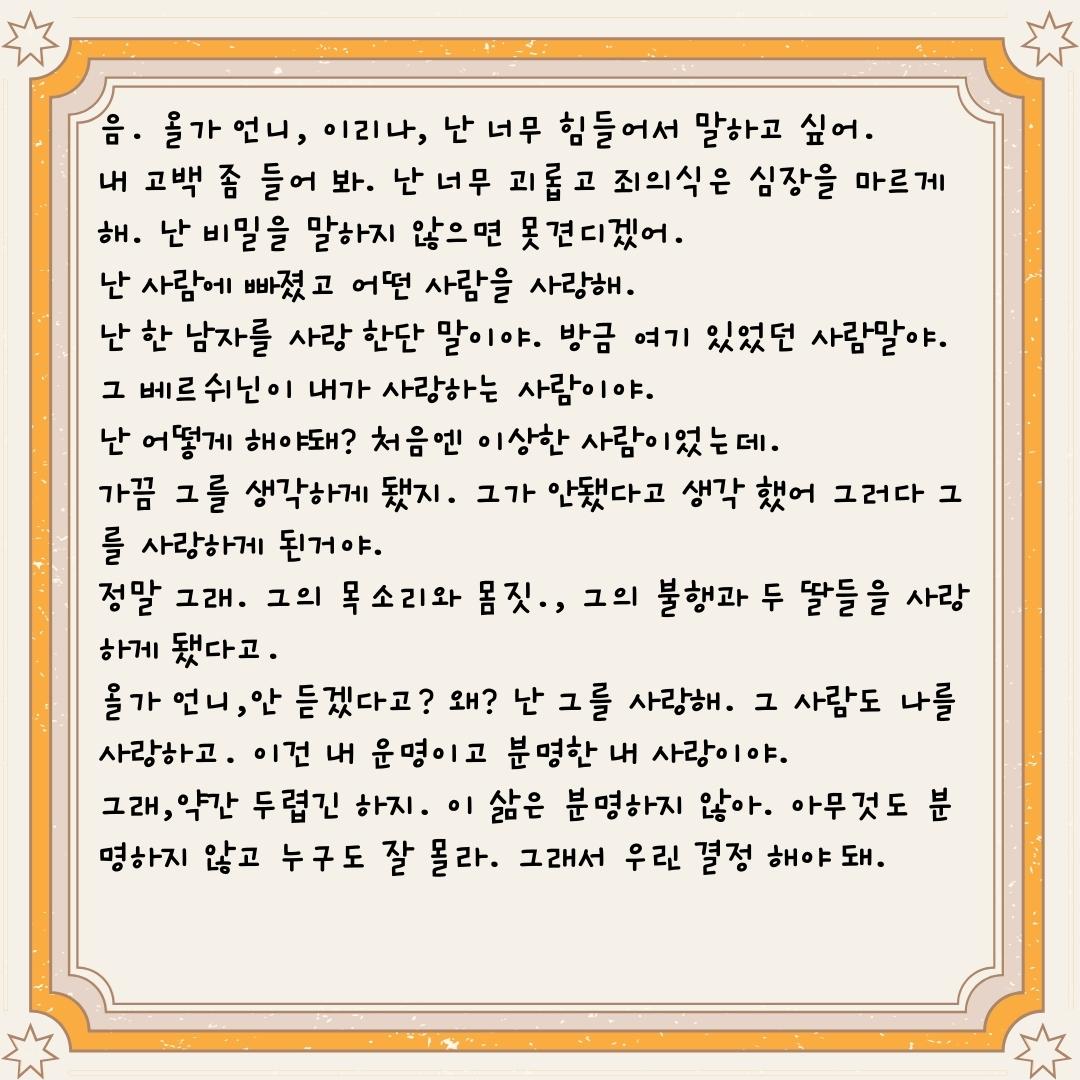 음. 올가 언니, 이리나, 난 너무 힘들어서 말하고 싶어.
내 고백 좀 들어 봐. 난 너무 괴롭고 죄의식은 심장을 마르게
해. 난 비밀을 말하지 않으면 못견디겠어.
난 사람에 빠졌고 어떤 사람을 사랑해.
난 한 남자를 사랑 한단 말이야. 방금 여기 있었던 사람말야.
그 베르쉬닌이 내가 사랑하는 사람이야.
난 어떻게 해야돼? 처음엔 이상한 사람이었는데.
가끔 그를 생각하게 됐지. 그가 안됐다고 생각 했어 그러다 그
를 사랑하게 된거야.
정말 그래. 그의 목소리와 몸짓., 그의 불행과 두 딸들을 사랑
하게 됐다고.
올가 언니,안 듣겠다고? 왜? 난 그를 사랑해. 그 사람도 나를
사랑하고. 이건 내 운명이고 분명한 내 사랑이야.
그래,약간 두렵긴 하지. 이 삶은 분명하지 않아. 아무것도 분
명하지 않고 누구도 잘 몰라. 그래서 우린 결정 해야 돼.